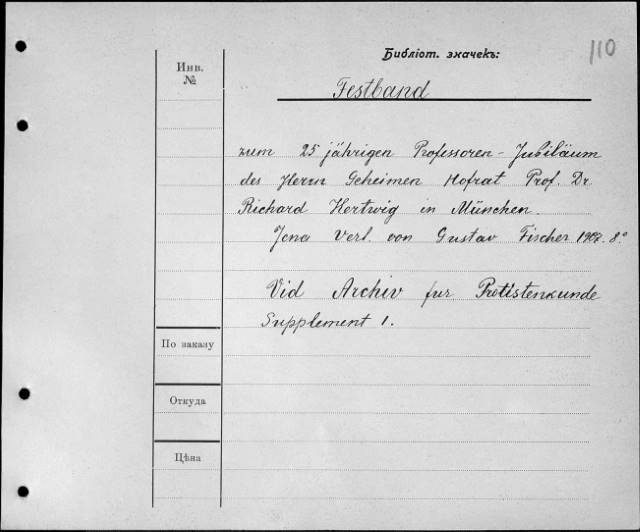 Библіот. значекъ:
110
Инв.
№
Festband
zum 25 jährigen Professoren-Jubiläum
des Herrn Geheimen Hofrat Prof. Dr
Richard Hertwig in München.
Jena Verl. von Gustav Fischer 1907. 8.°
Vid Archiv fur Protistenkunde
Supplement 1.
По заказу
Откуда
Цѣна